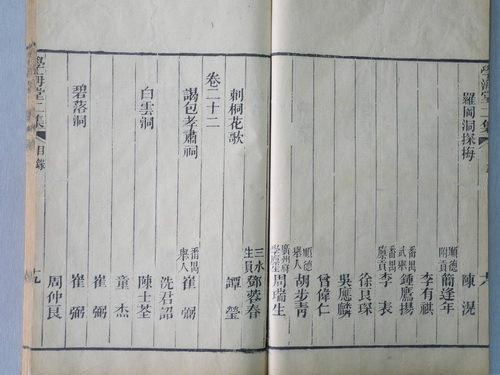 學海堂二集
陳滉
羅岡洞探梅
順德附貢
簡逢年
李有祺
番禺武廩
鍾鷹揚
番禺廩貢
李表
徐良琛
吳應麟
曾偉仁
順德舉人
胡步青
廣州府學廩生
周瑞生
刺桐花歌
三水生員
鄧蓉春
譚瑩
卷二十二
謁包孝肅祠
番禺舉人
崔弼
冼君詔
白雲洞
陳士荃
童杰
崔弼
碧落洞
崔弼
周仲良
學海堂二集
目錄
十九